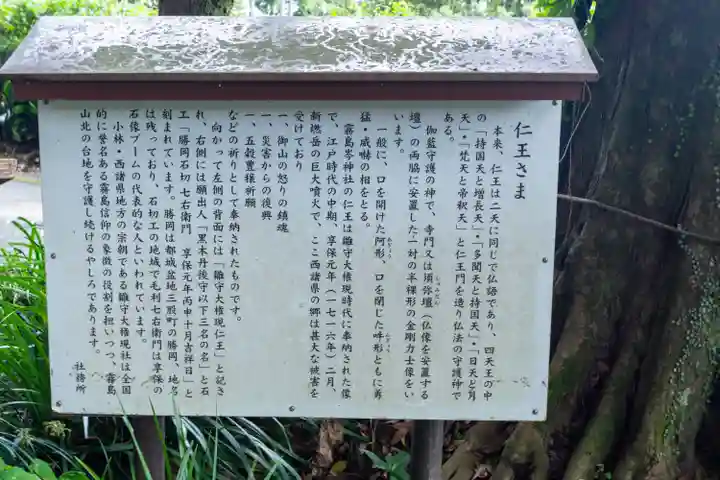 仁王さま
本来、仁王は二天に同じで仏語であり、四天王の中
の「持国天と増長天」・「多聞天と持国天」・「日天と月
天」・「梵天と帝釈天」と仁王門を造り仏法の守護神で
ある。
伽藍守護の神で、寺門又は須弥壇（仏像を安置する
しゅみだん
壇）の両脇に安置した一対の半裸形の金剛力士像をい
います。
一般に、口を開けた阿形、口を閉じた吽形ともに勇
あぎょう
うんぎょう
猛・威嚇の相をとる。
霧島岑神社の仁王は雛守大権現時代に奉納された像
で、江戸時代の中期、享保元年（一七一六年）二月、
新燃岳の巨大噴火で、ここ西諸県の郷は甚大な被害を
受けており
一、御山の怒りの鎮魂
一、災害からの復興
一、五穀豊穣祈願
などの祈りとして奉納されたものです。
向かって左側の背面には「雛守大権現仁王」と記さ
れ、右側には願出人「黒木丹後守以下三名の名」と石
工「勝岡石切七右衛門　享保元年丙申十月吉祥日」と
刻まれています。勝岡は都城盆地三股町の勝岡、地名
は残っており、石切工の地域で毛利七右衛門は享保の
石像ブームの代表的な人といわれています。
小林・西諸県地方の宗朝である雛守大権現社は全国
的に誉名ある霧島信仰の象徴の役割を担いつつ、霧島
山北の台地を守護し続けるやしろであります。
社務所